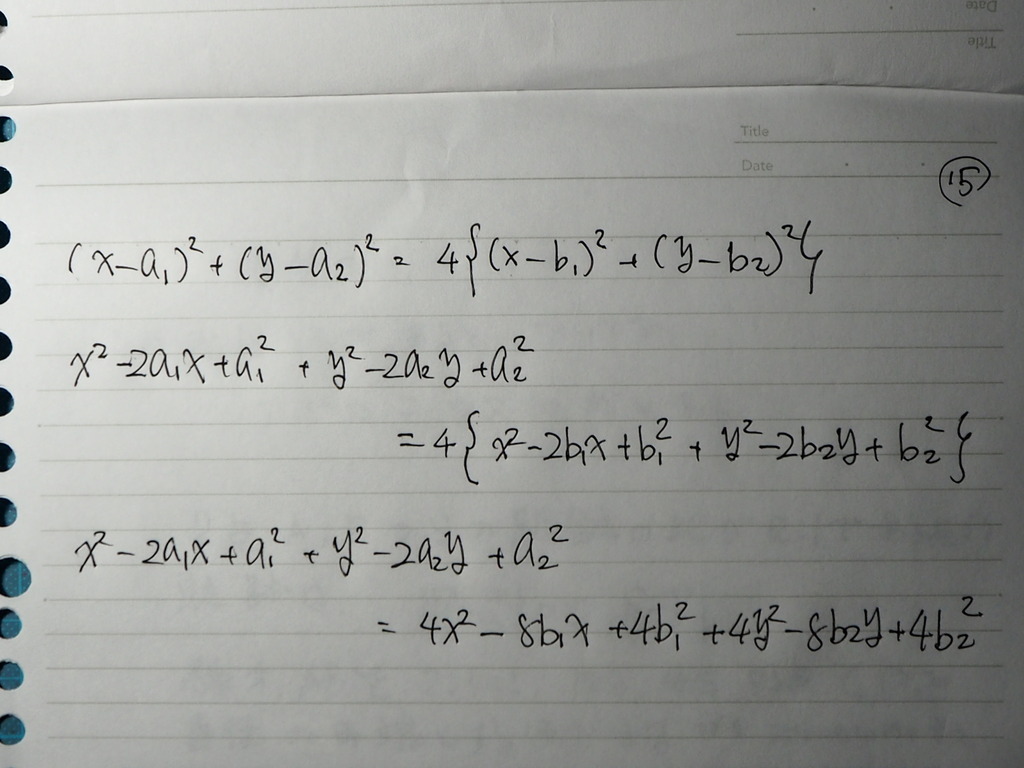 Date
Title
Title
Date
⑮
(x-a₁)² + (y-a₂)² = 4{(x-b₁)² + (y-b₂)²}
x² -2a₁x + a₁² + y² -2a₂y + a₂²
= 4{x² -2b₁x + b₁² + y² -2b₂y + b₂²}
x² - 2a₁x + a₁² + y² - 2a₂y + a₂²
= 4x² - 8b₁x + 4b₁² + 4y² - 8b₂y + 4b₂²